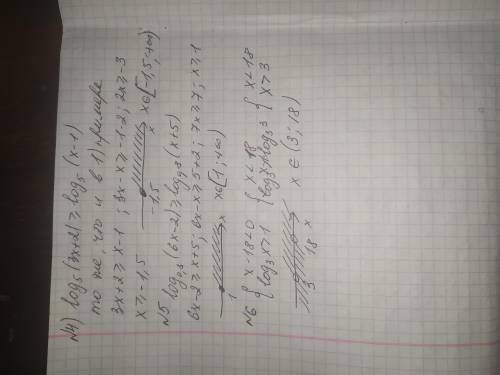 №4) log₅(3x+2) ≥ log₅(x-1)
то же, что и в 1) примере
3x+2 ≥ x-1 ; 3x-x ≥ -1-2 ; 2x ≥ -3
x ≥ -1,5 -1,5 x x∈[-1,5;+∞)
№5 log₀,₈(6x-2) ≥ log₀,₈(x+5)
6x-2 ≥ x+5; 6x-x ≥ 5+2; 7x ≥ 7; x ≥ 1
1 x x∈[1;+∞)
№6 { x-18<0 { x<18 { x<18
log₃x>1 log₃x>log₃3 x>3
3 18 x x∈(3;18)